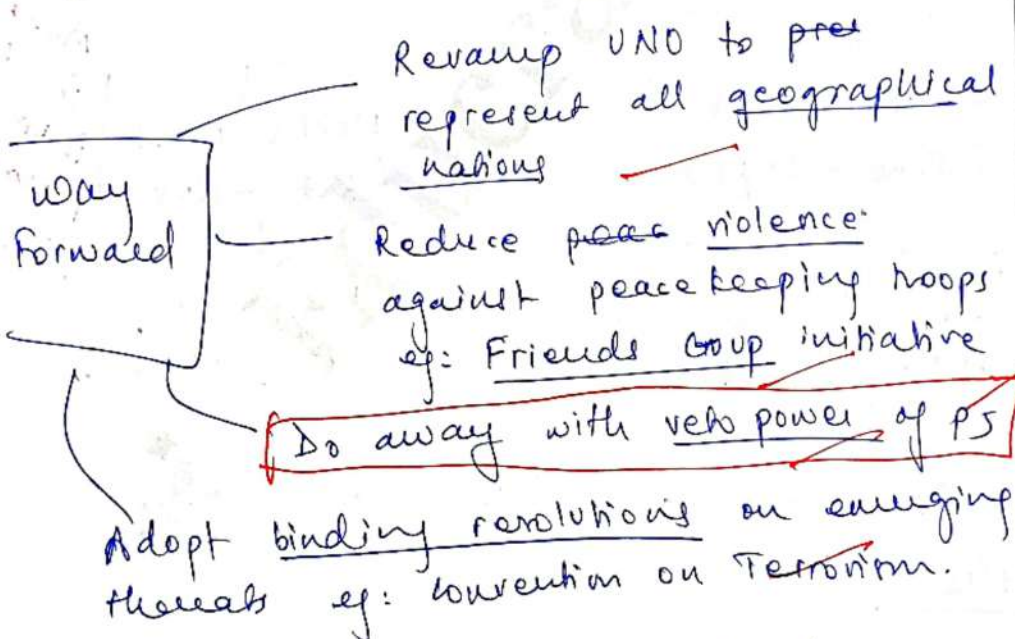 Revamp UNO to pres
represent all geographical
nations
Way
Forward
Reduce peac violence
against peacekeeping troops
eg: Friends Group initiative
Do away with veto power of P5
Adopt binding resolutions on emerging
threats eg: convention on Terrorism.